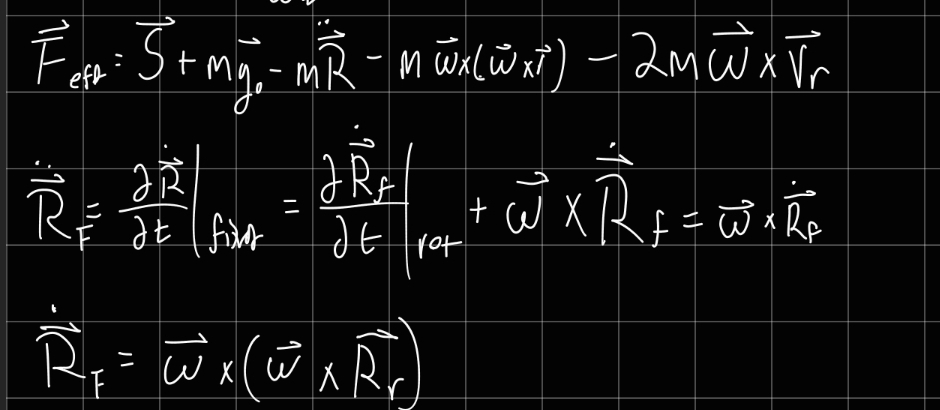 F⃗_eff = S⃗ + mg⃗₀ - mR⃗̈ - m ω⃗×(ω⃗×r⃗) - 2m ω⃗ × v⃗_r
R⃗̈_F = ∂R⃗̇/∂t |_fixed = ∂R⃗̇_f/∂t |_rot + ω⃗ × R⃗̇_f = ω⃗ × R⃗̇_f
R⃗̇_F = ω⃗ × (ω⃗ × R⃗_r)